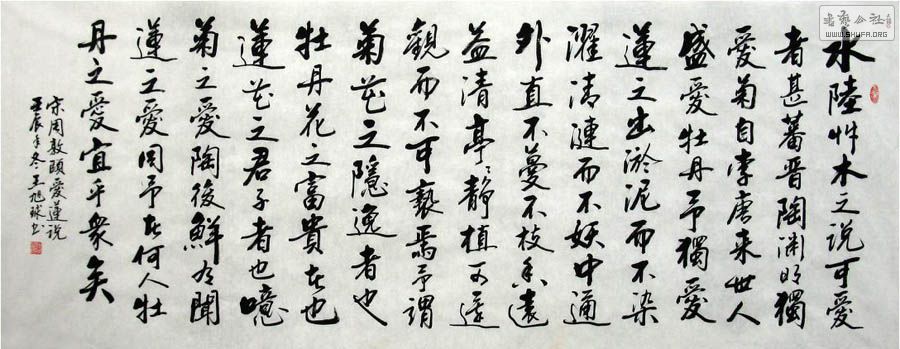 水陸艸木之说可愛
者甚蕃晋陶渊明獨
愛菊自李唐来世人
盛愛牡丹予獨愛
蓮之出淤泥而不染
濯清漣而不妖中通
外直不蔓不枝香遠
益清亭〻静植可遠
觀而不可褻焉予謂
菊花之隱逸者也
牡丹花之富貴者也
蓮花之君子者也噫
菊之愛陶後鮮有聞
蓮之愛同予者何人牡
丹之愛宜乎衆矣
宋周敦頤愛蓮说
壬辰年冬王旭球书
书艺公社
WWW.SHUFA.ORG